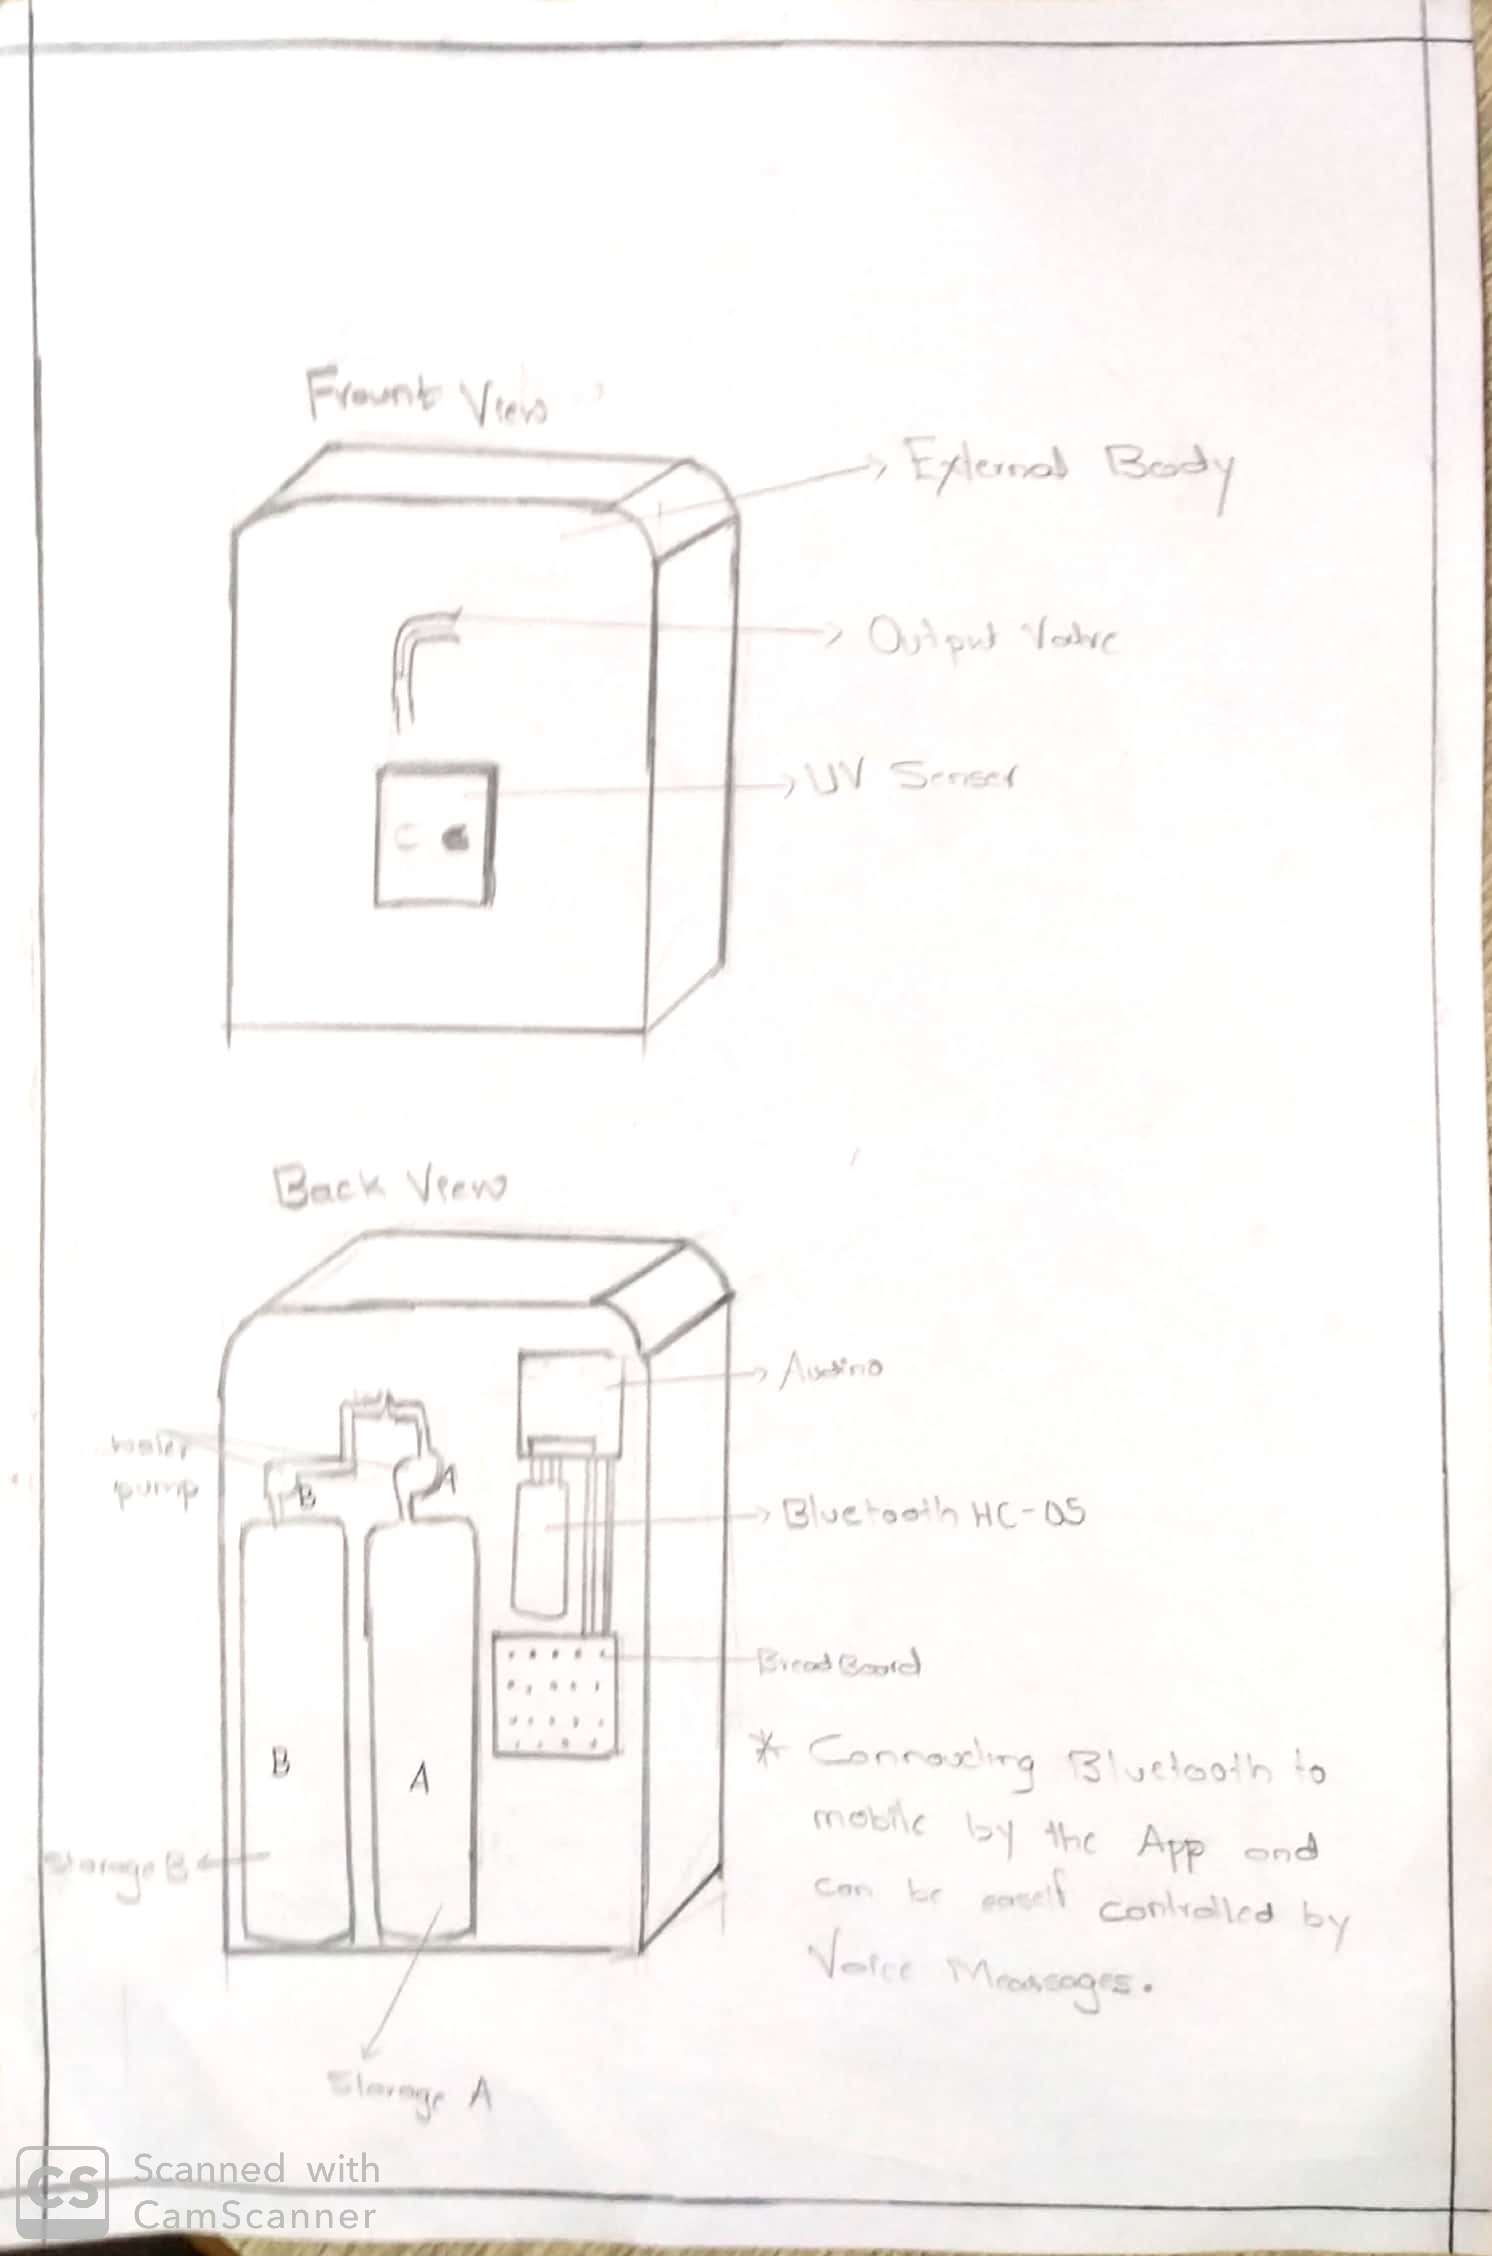 Frount View
External Body
Output Valve
UV Senser
C
Back View
Ardino
water
pump
B
A
Bluetooth HC-05
Bread Board
B
A
* Connecting Bluetooth to
mobile by the App and
can be controlled by
Voice Meassages.
Storage B
Storage A
CS
Scanned with
CamScanner